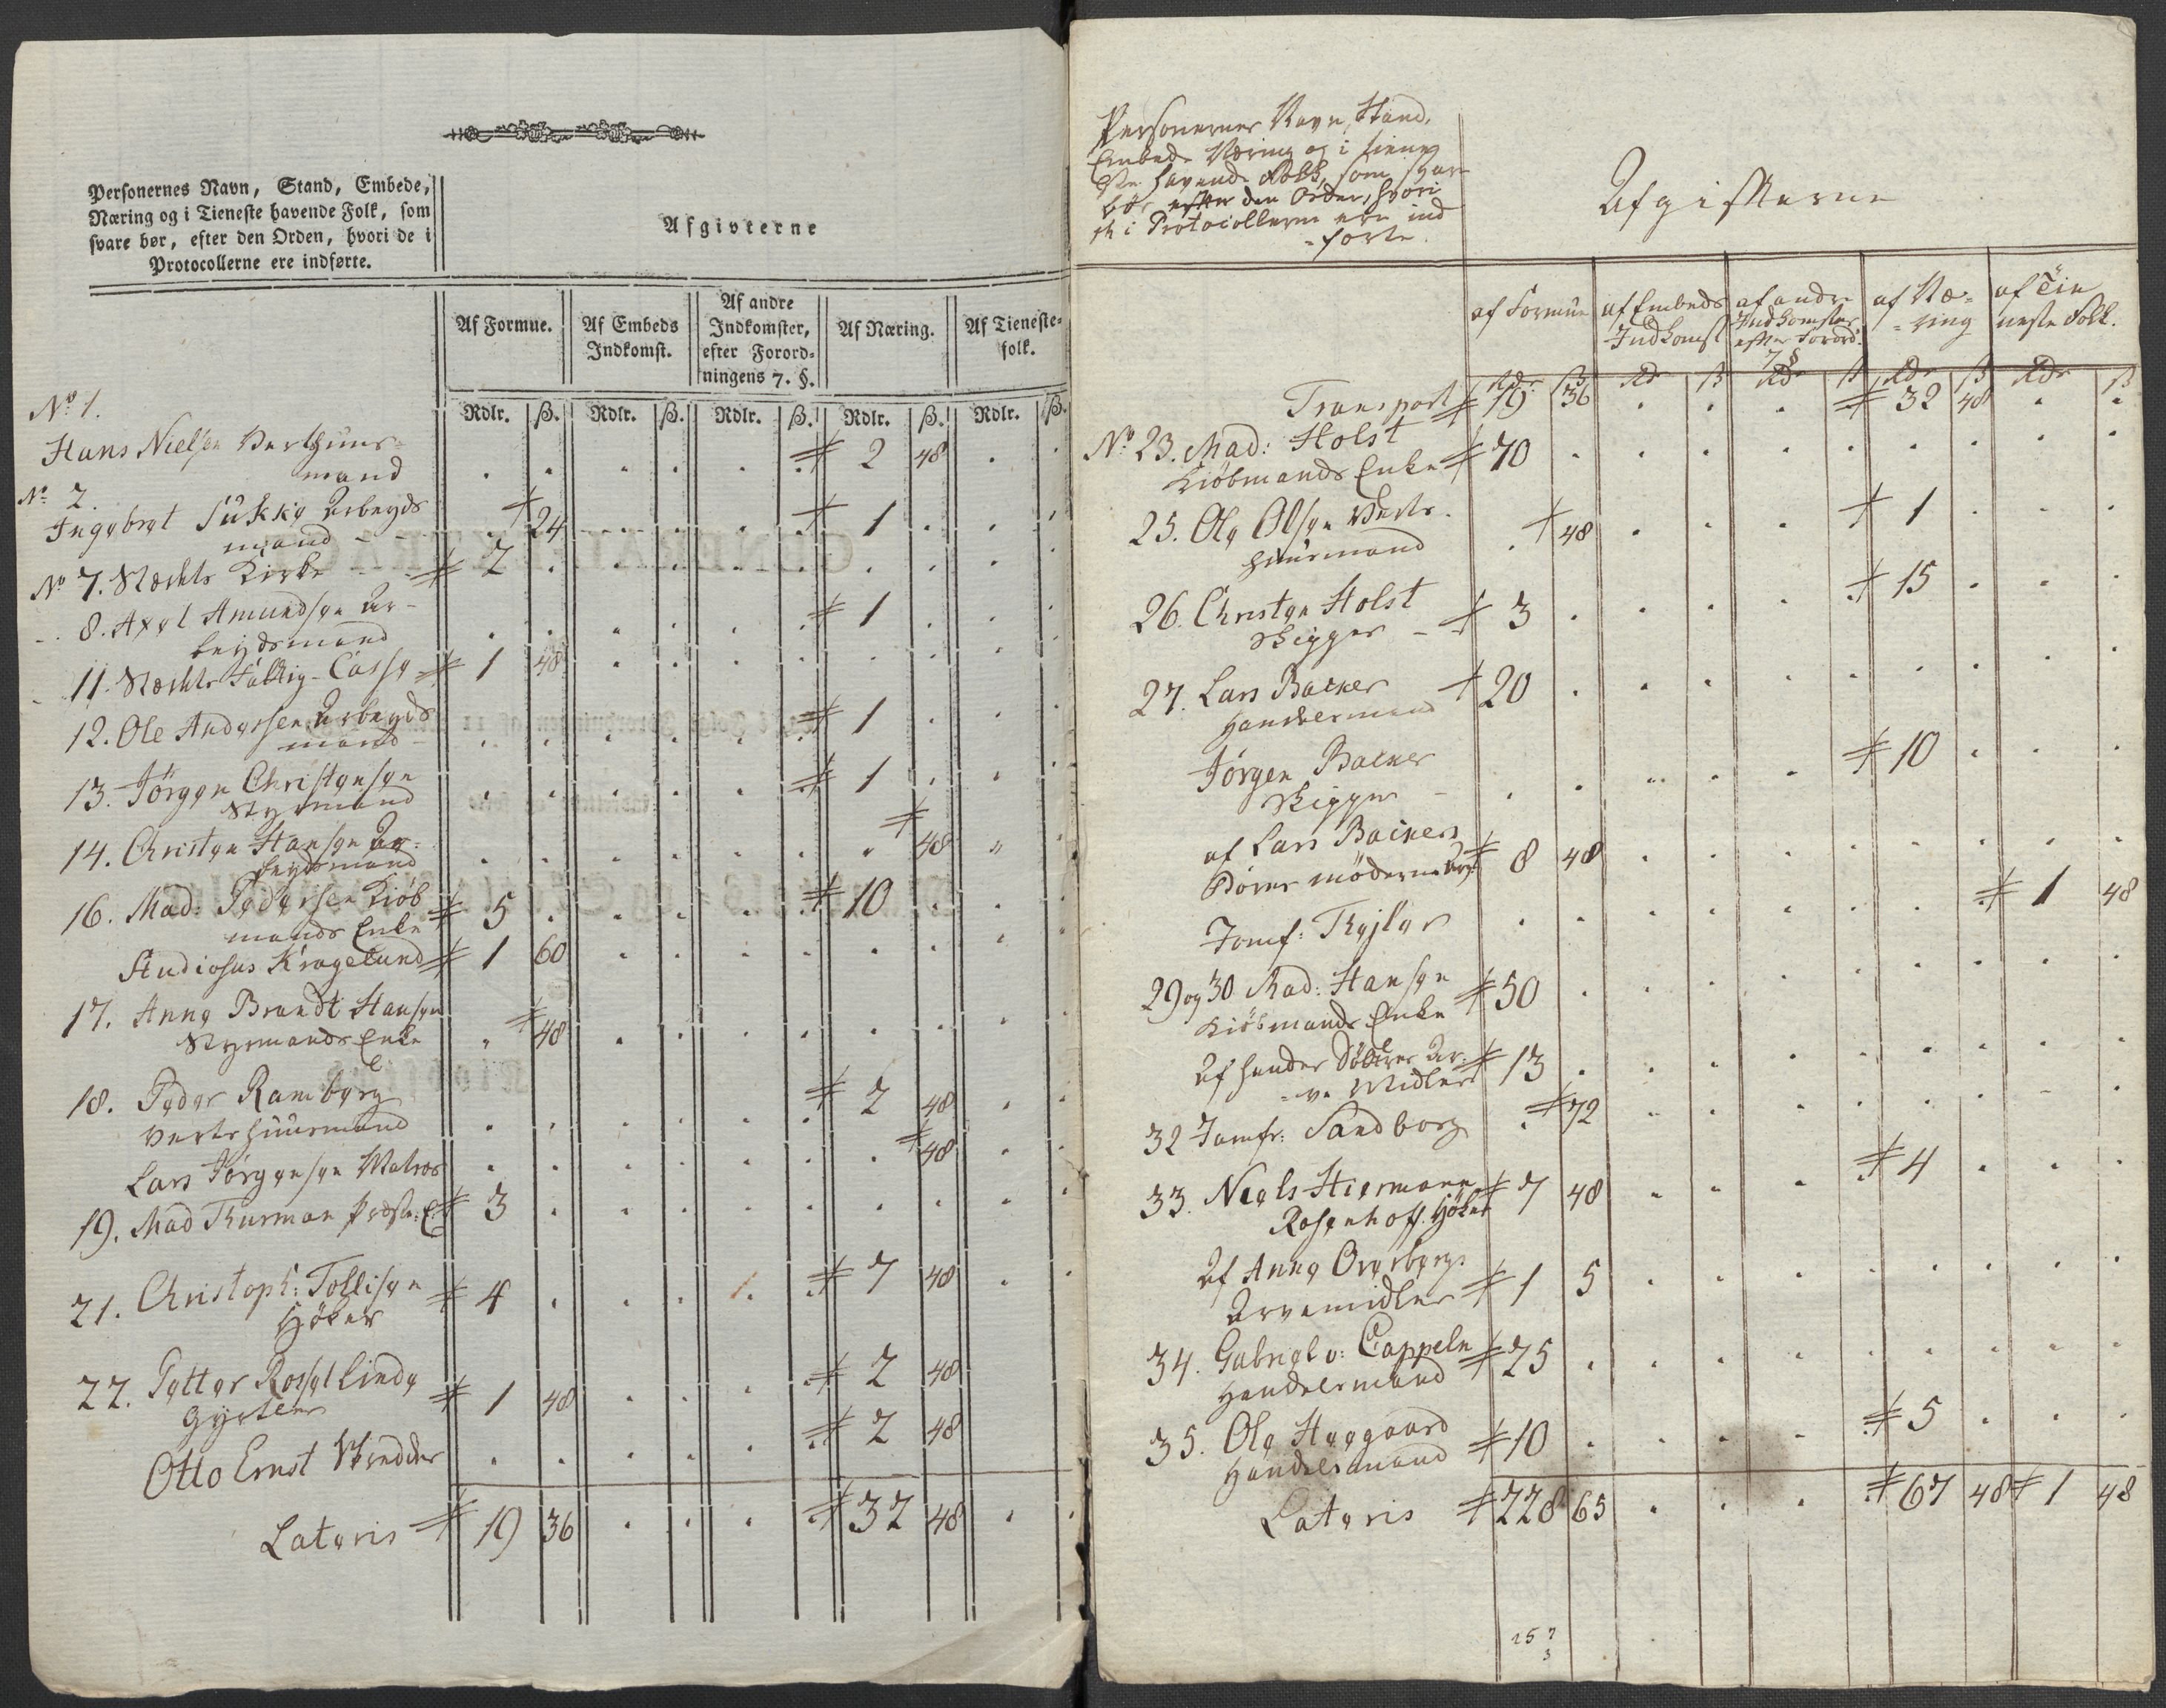 Personernes Navn, Stand, Embede,
Næring og i Tieneste havende Folk, som
svare bør, efter den Orden, hvori de i
Protocollerne ere indførte.
Afgivterne
Af Formue.
Af Embeds
Indkomst.
Af andre
Indkomster,
efter Forord-
ningens 7. §.
Af Næring.
Af Tieneste-
folk.
Rdlr. ß. Rdlr. ß. Rdlr. ß. Rdlr. ß. Rdlr. ß.
No 1.
Hans Nielsen Vertshuus-
mand 2 48
No 2.
Ingebret Arbeyds
mand 24 1
No 7. Næstets Kirke 2
8. Axel Amundsen Ar-
beydsmand 1
11. Næstets Fattig-Casse 1 48
12. Ole Andersen Arbeyds
mand 1
13. Jørgen Christensen
Styrmand 1
14. Christen Hansen Ar-
beydsmand 48
16. Mad: Pedersen Kiøb
mands Enke 5 10
Studiosus Kragelund 1 60
17. Anne Brandt Hansen
Styrmands Enke 48
18. Peder Ramberg
Vertshuusmand 2 48
Lars Jørgensen Matros 48
19. Mad Thurman Præste E: 3
21. Christoph: Tollisen
Høker 4 7 48
22. Petter Rossel Linde
Gyrtler 1 48 2 48
Otto Ernst 2 48
Lateris 19 36 32 48
Personernes Navn, Stand,
Embede Næring og i Tiene
ste havende Folk, som svare
bør efter den Orden, hvori
de i Protocollerne ere ind
-førte.
Afgifterne
af Formue
af Embeds
Indkomst
af andre
Indkomster
efter Forord:
7 §
af Næ-
-ring
af Tie
neste Folk.
Rdr ß Rdr ß Rdr ß Rdr ß Rdr ß
Transport 19 36 32 48
No 23. Mad: Holst
Kiøbmands Enke 70
25. Ole Olsen Verts-
huusmand 48 1
26. Christen Holst
Skipper 3 15
27. Lars Backer
Handelsmand 20
Jørgen Backer
Skipper 10
af Lars Backers
Børns mødrene Arv 8 48
Jomf: 1 48
29 og 30 Mad: Hansen
Kiøbmands Enke 50
Af hendes Døttres Ar-
-ve Midler 13
32 Jomfr: Sandborg 72
33. Niels Hiermann
Rosenhoff. Høker 7 48 4
Af Anne Overbergs
Arvemidler 1 5
34. Gabriel v: Cappeln
Handelsmand 25
35. Ole Heegaard
Handelsmand 10 5
Lateris 228 65 67 48 1 48
25 7
3